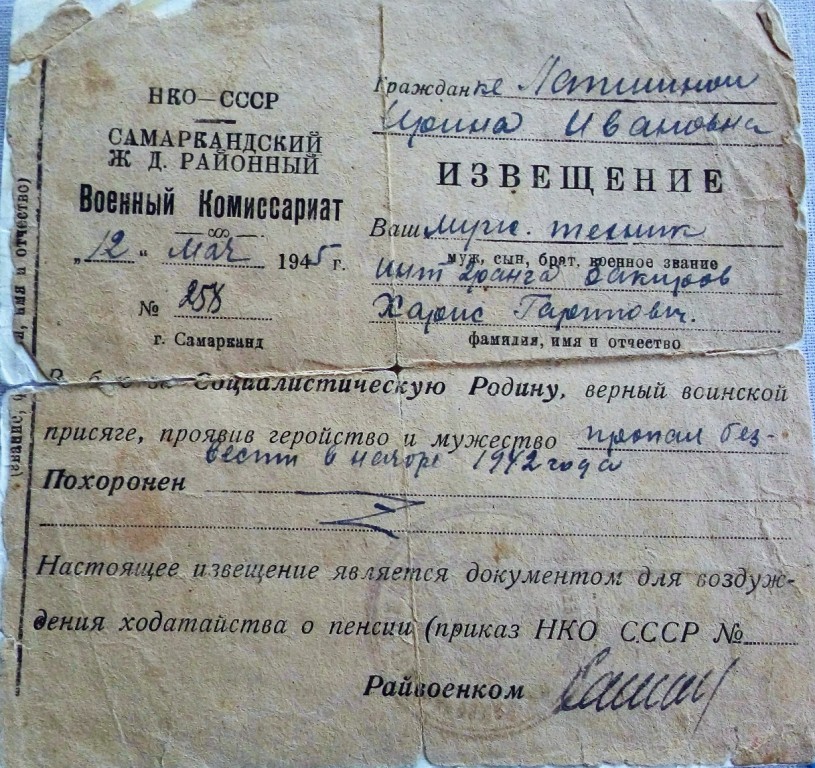 НКО — СССР
САМАРКАНДСКИЙ
Ж Д. РАЙОННЫЙ
Военный Комиссариат
„12“ мая 1945 г.
№ 258
г. Самарканд
Гражданке Латышиной
Ирина Ивановна
ИЗВЕЩЕНИЕ
Ваш муж. техник
муж, сын, брат, военное звание
инт 2ранга Закиров
Харис Гарипович.
фамилия, имя и отчество
, имя и отчество)
звание,
Социалистическую Родину, верный воинской
присяге, проявив геройство и мужество пропал без-
вести в ноябре 1942 года
Похоронен
Настоящее извещение является документом для воздуж-
дения ходатайства о пенсии (приказ НКО СССР №
Райвоенком